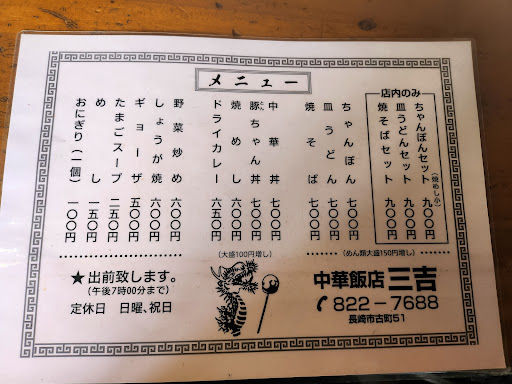 メニュー
店内のみ
ちゃんぽんセット(焼めし小) 九〇〇円
皿うどんセット 九〇〇円
焼そばセット 九〇〇円
ちゃんぽん 七〇〇円
皿うどん 七〇〇円
焼そば 七〇〇円
中華丼 七〇〇円
豚ちゃん丼 七〇〇円
焼めし 六〇〇円
ドライカレー 六五〇円
野菜炒め 六〇〇円
しょうが焼 六〇〇円
ギョーザ 五〇〇円
たまごスープ 二五〇円
めし 一五〇円
おにぎり(一個) 一〇〇円
(めん類大盛150円増し)
(大盛100円増し)
★出前致します。
(午後7時00分まで)
定休日 日曜、祝日
中華飯店 三吉
822-7688
長崎市古町51